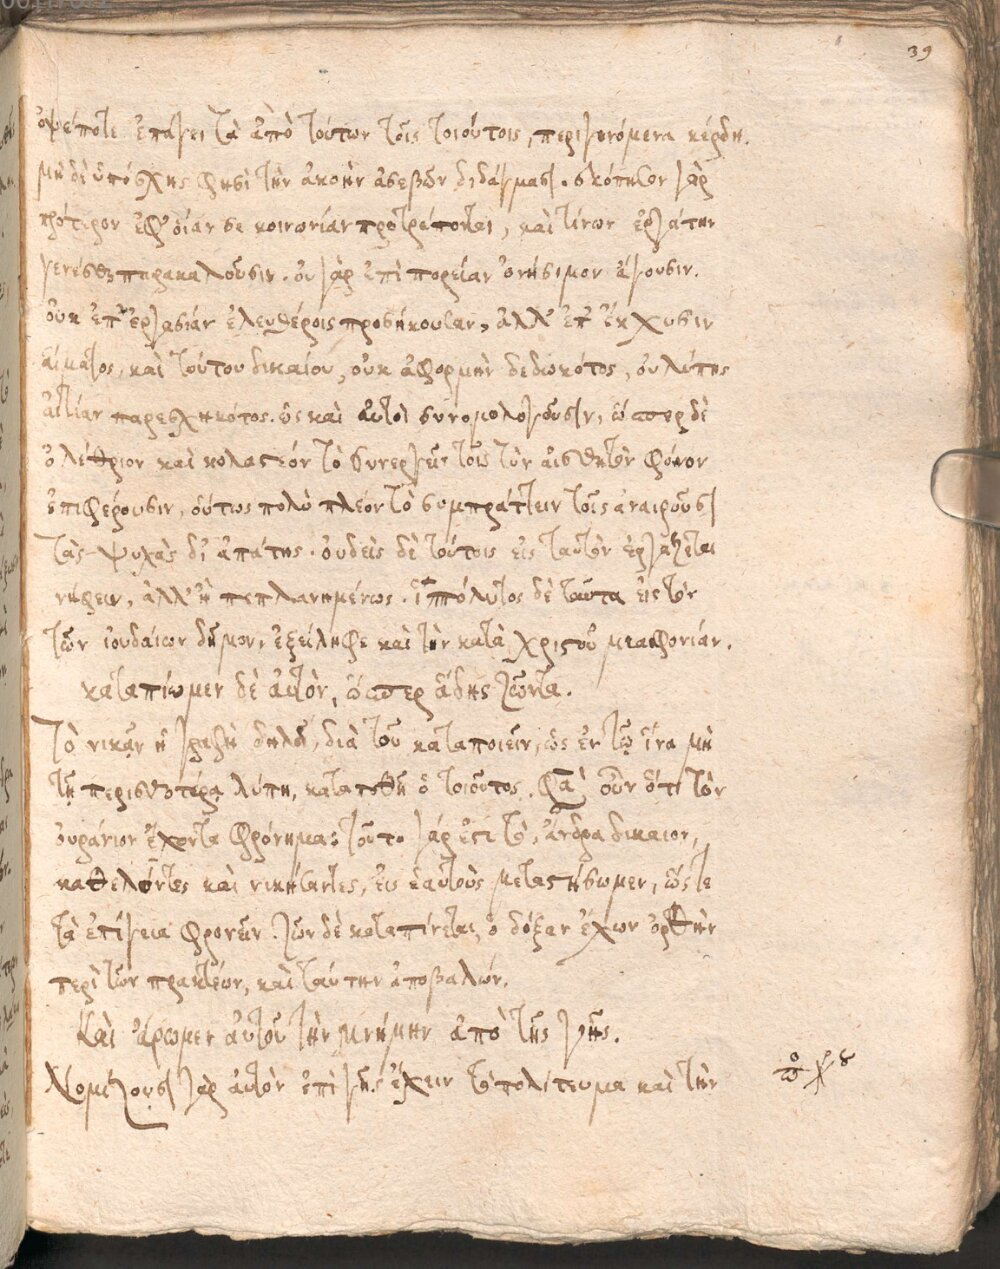 39
ὀψέποτε ἐπάγει τὰ ἀπὸ τούτων τοῖς τοιούτοις, περιγινόμενα κέρδη.
μὴ δὲ ὑπόσχης φησὶ τὴν ἀκοὴν ἀσεβῶν διδάγμασι. σκόπησον γὰρ
πρότερον ἐφ' οἵαν σε κοινωνίαν προτρέπονται, καὶ τίνων ἐργάτην
γενέσθαι παρακαλοῦσιν. οὐ γὰρ ἐπὶ πορείαν ὀνήσιμον ἄγουσιν.
οὐκ ἐπ' ἐργασίαν ἐλευθέροις προσήκουσαν, ἀλλ' ἐπ' ἔκχυσιν
αἵματος, καὶ τούτου δικαίου, οὐκ ἀφορμὴν δεδωκότος, οὐ λύπης
αἰτίαν παρεσχηκότος. ὡς καὶ αὐτοὶ συνομολογοῦσιν, ὥσπερ δὲ
ὀλέθριον καὶ κολαστέον τὸ συνεργεῖν τοῖς τὸν αἰσθητὸν φόνον
ἐπιφέρουσιν, οὕτως πολὺ πλέον τὸ συμπράττειν τοῖς ἀναιροῦσι
τὰς ψυχὰς δι' ἀπάτης. οὐδεὶς δὲ τούτοις εἰς ταυτὸν ἐργάζεται
νήφειν, ἀλλ' ἢ πεπλανημένως. ἱππόλυτος δὲ ταῦτα εἰς τὸν
τῶν ἰουδαίων δῆμον, ἐξείληφε καὶ τὴν κατὰ χριστοῦ μιαιφονίαν.
καταπίωμεν δὲ αὐτὸν, ὥσπερ ἅδης ζῶντα.
Τὸ νικᾶν ἡ γραφὴ δηλοῖ, διὰ τοῦ καταποιεῖν, ὡς ἐν τῷ ἵνα μὴ
τῇ περισσοτέρᾳ λύπῃ, καταποθῇ ὁ τοιοῦτος. φασὶ οὖν ὅτι τὸν
οὐράνιον ἔχοντα φρόνημα: τοῦτο γάρ ἐστι τὸ, ἄνδρα δίκαιον,
καθελόντες καὶ νικήσαντες, εἰς ἑαυτοὺς μεταστήσωμεν, ὥστε
τὰ ἐπίγεια φρονεῖν. ζῶν δὲ καταπίνεται, ὁ δόξαν ἔχων ὀρθὴν
περὶ τῶν πρακτέων, καὶ ταύτην ἀποβαλών.
Καὶ ἄρωμεν αὐτοῦ τὴν μνήμην ἀπὸ τῆς γῆς.
Νομίζουσι γὰρ αὐτὸν ἐπὶ γῆς ἔχειν τὸ πολίτευμα καὶ τὴν